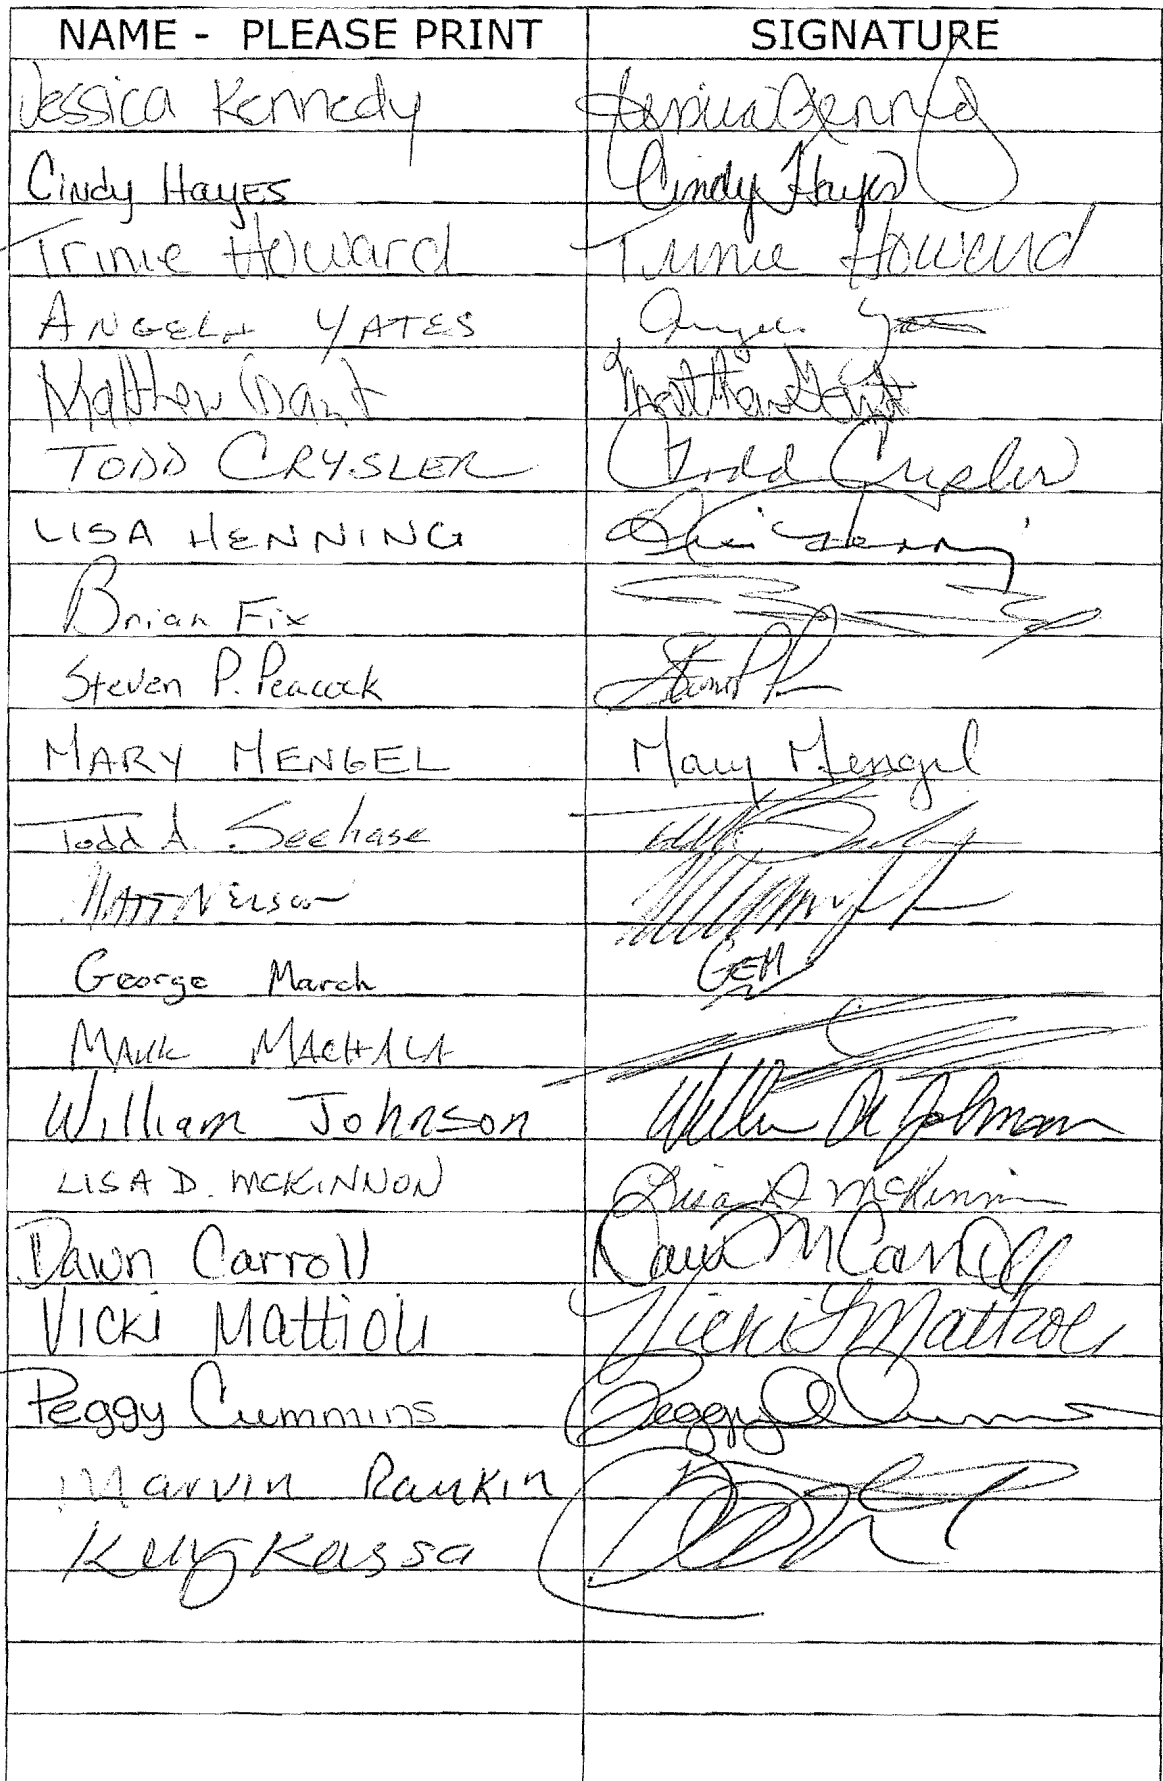 NAME - PLEASE PRINT SIGNATURE
Jessica Kennedy Jessica Kennedy
Cindy Hayes Cindy Hayes
Trinie Howard Trinie Howard
ANGELA YATES Angela Yates
Matthew Gant Matthew Gant
TODD CRYSLER Todd Crysler
LISA HENNING Lisa Henning
Brian Fix
Steven P. Peacock
MARY MENGEL Mary Mengel
Todd A. Seehase
MATT NELSON
George March GEM
MARK MACHALA
William Johnson William Johnson
LISA D. MCKINNON Lisa D McKinnon
Dawn Carroll Dawn M Carroll
Vicki Mattioli Vicki L Mattioli
Peggy Cummins Peggy Cummins
Marvin Rankin
Kelly Kassa